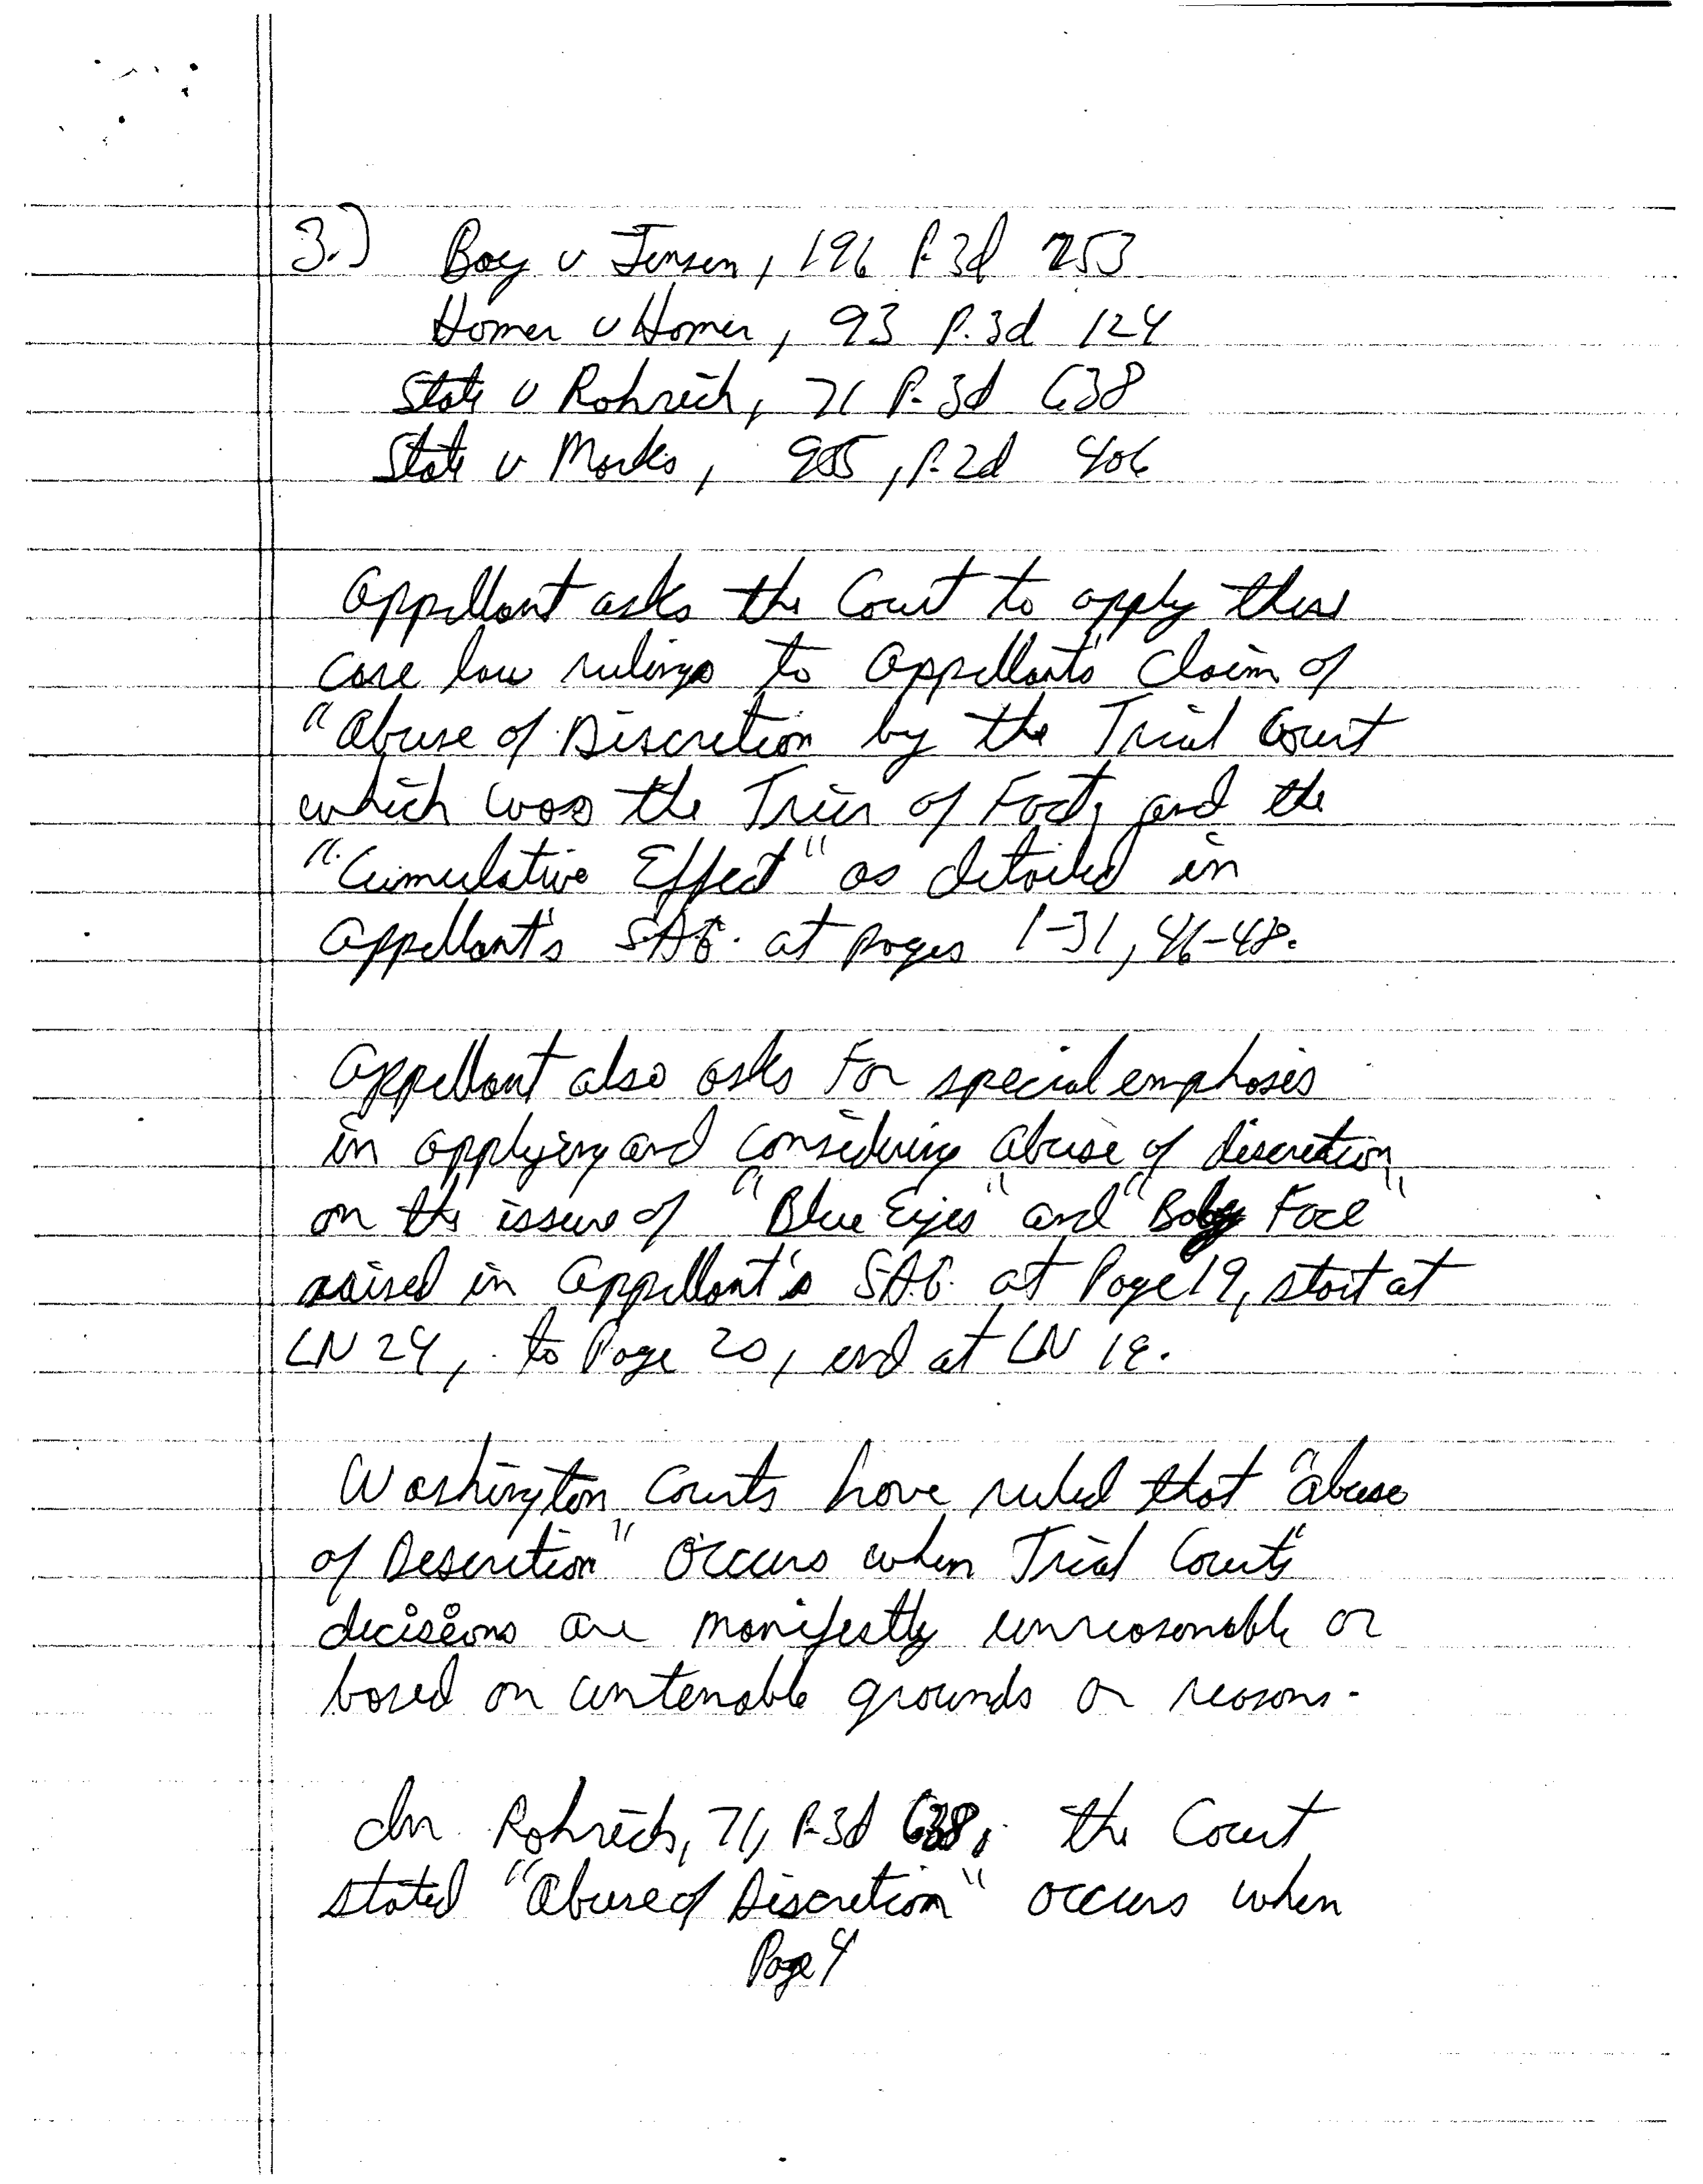 3.) Boy v Jensen, 196 P.3d 753
Homer v Homer, 93 P.3d 124
State v Rohrich, 71 P.3d 638
State v Marks, 905, P.2d 406
Appellant asks the Court to apply these
case law rulings to Appellant's Claim of
"Abuse of Discretion by the Trial Court
which was the Trier of Fact, and the
"Cumulative Effect" as detailed in
Appellant's S.A.G. at pages 1-31, 46-48.
Appellant also asks For special emphasis
in applying and considering abuse of discretion
on the issue of "Blue Eyes" and "Baby Face"
raised in Appellant's S.A.G. at Page 19, start at
LN 24, to Page 20, end at LN 18.
Washington Courts have ruled that "abuse
of Descretion" occurs when Trial Courts'
decisions are manifestly unreasonable or
based on untenable grounds or reasons.
In Rohrich, 71, P.3d 638, the Court
stated "Abuse of Discretion" occurs when
Page 4